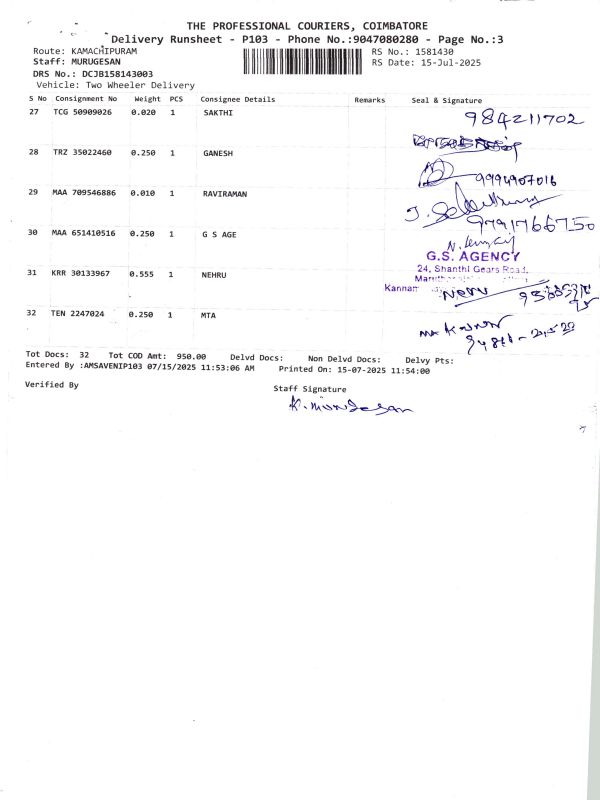 THE PROFESSIONAL COURIERS, COIMBATORE
Delivery Runsheet - P103 - Phone No.:9047080280 - Page No.:3
Route: KAMACHIPURAM
RS No.: 1581430
Staff: MURUGESAN
RS Date: 15-Jul-2025
DRS No.: DCJB158143003
Vehicle: Two Wheeler Delivery
S No Consignment No Weight PCS Consignee Details Remarks Seal & Signature
27 TCG 50909026 0.020 1 SAKTHI
984211702
28 TRZ 35022460 0.250 1 GANESH
9994907016
29 MAA 709546886 0.010 1 RAVIRAMAN
9791766750
30 MAA 651410516 0.250 1 G S AGE
G.S. AGENCY
24, Shanthi Gears Road,
31 KRR 30133967 0.555 1 NEHRU
Kannam
32 TEN 2247024 0.250 1 MTA
Tot Docs: 32 Tot COD Amt: 950.00 Delvd Docs: Non Delvd Docs: Delvy Pts:
Entered By :AMSAVENIP103 07/15/2025 11:53:06 AM Printed On: 15-07-2025 11:54:00
Verified By
Staff Signature
K. Murugesan